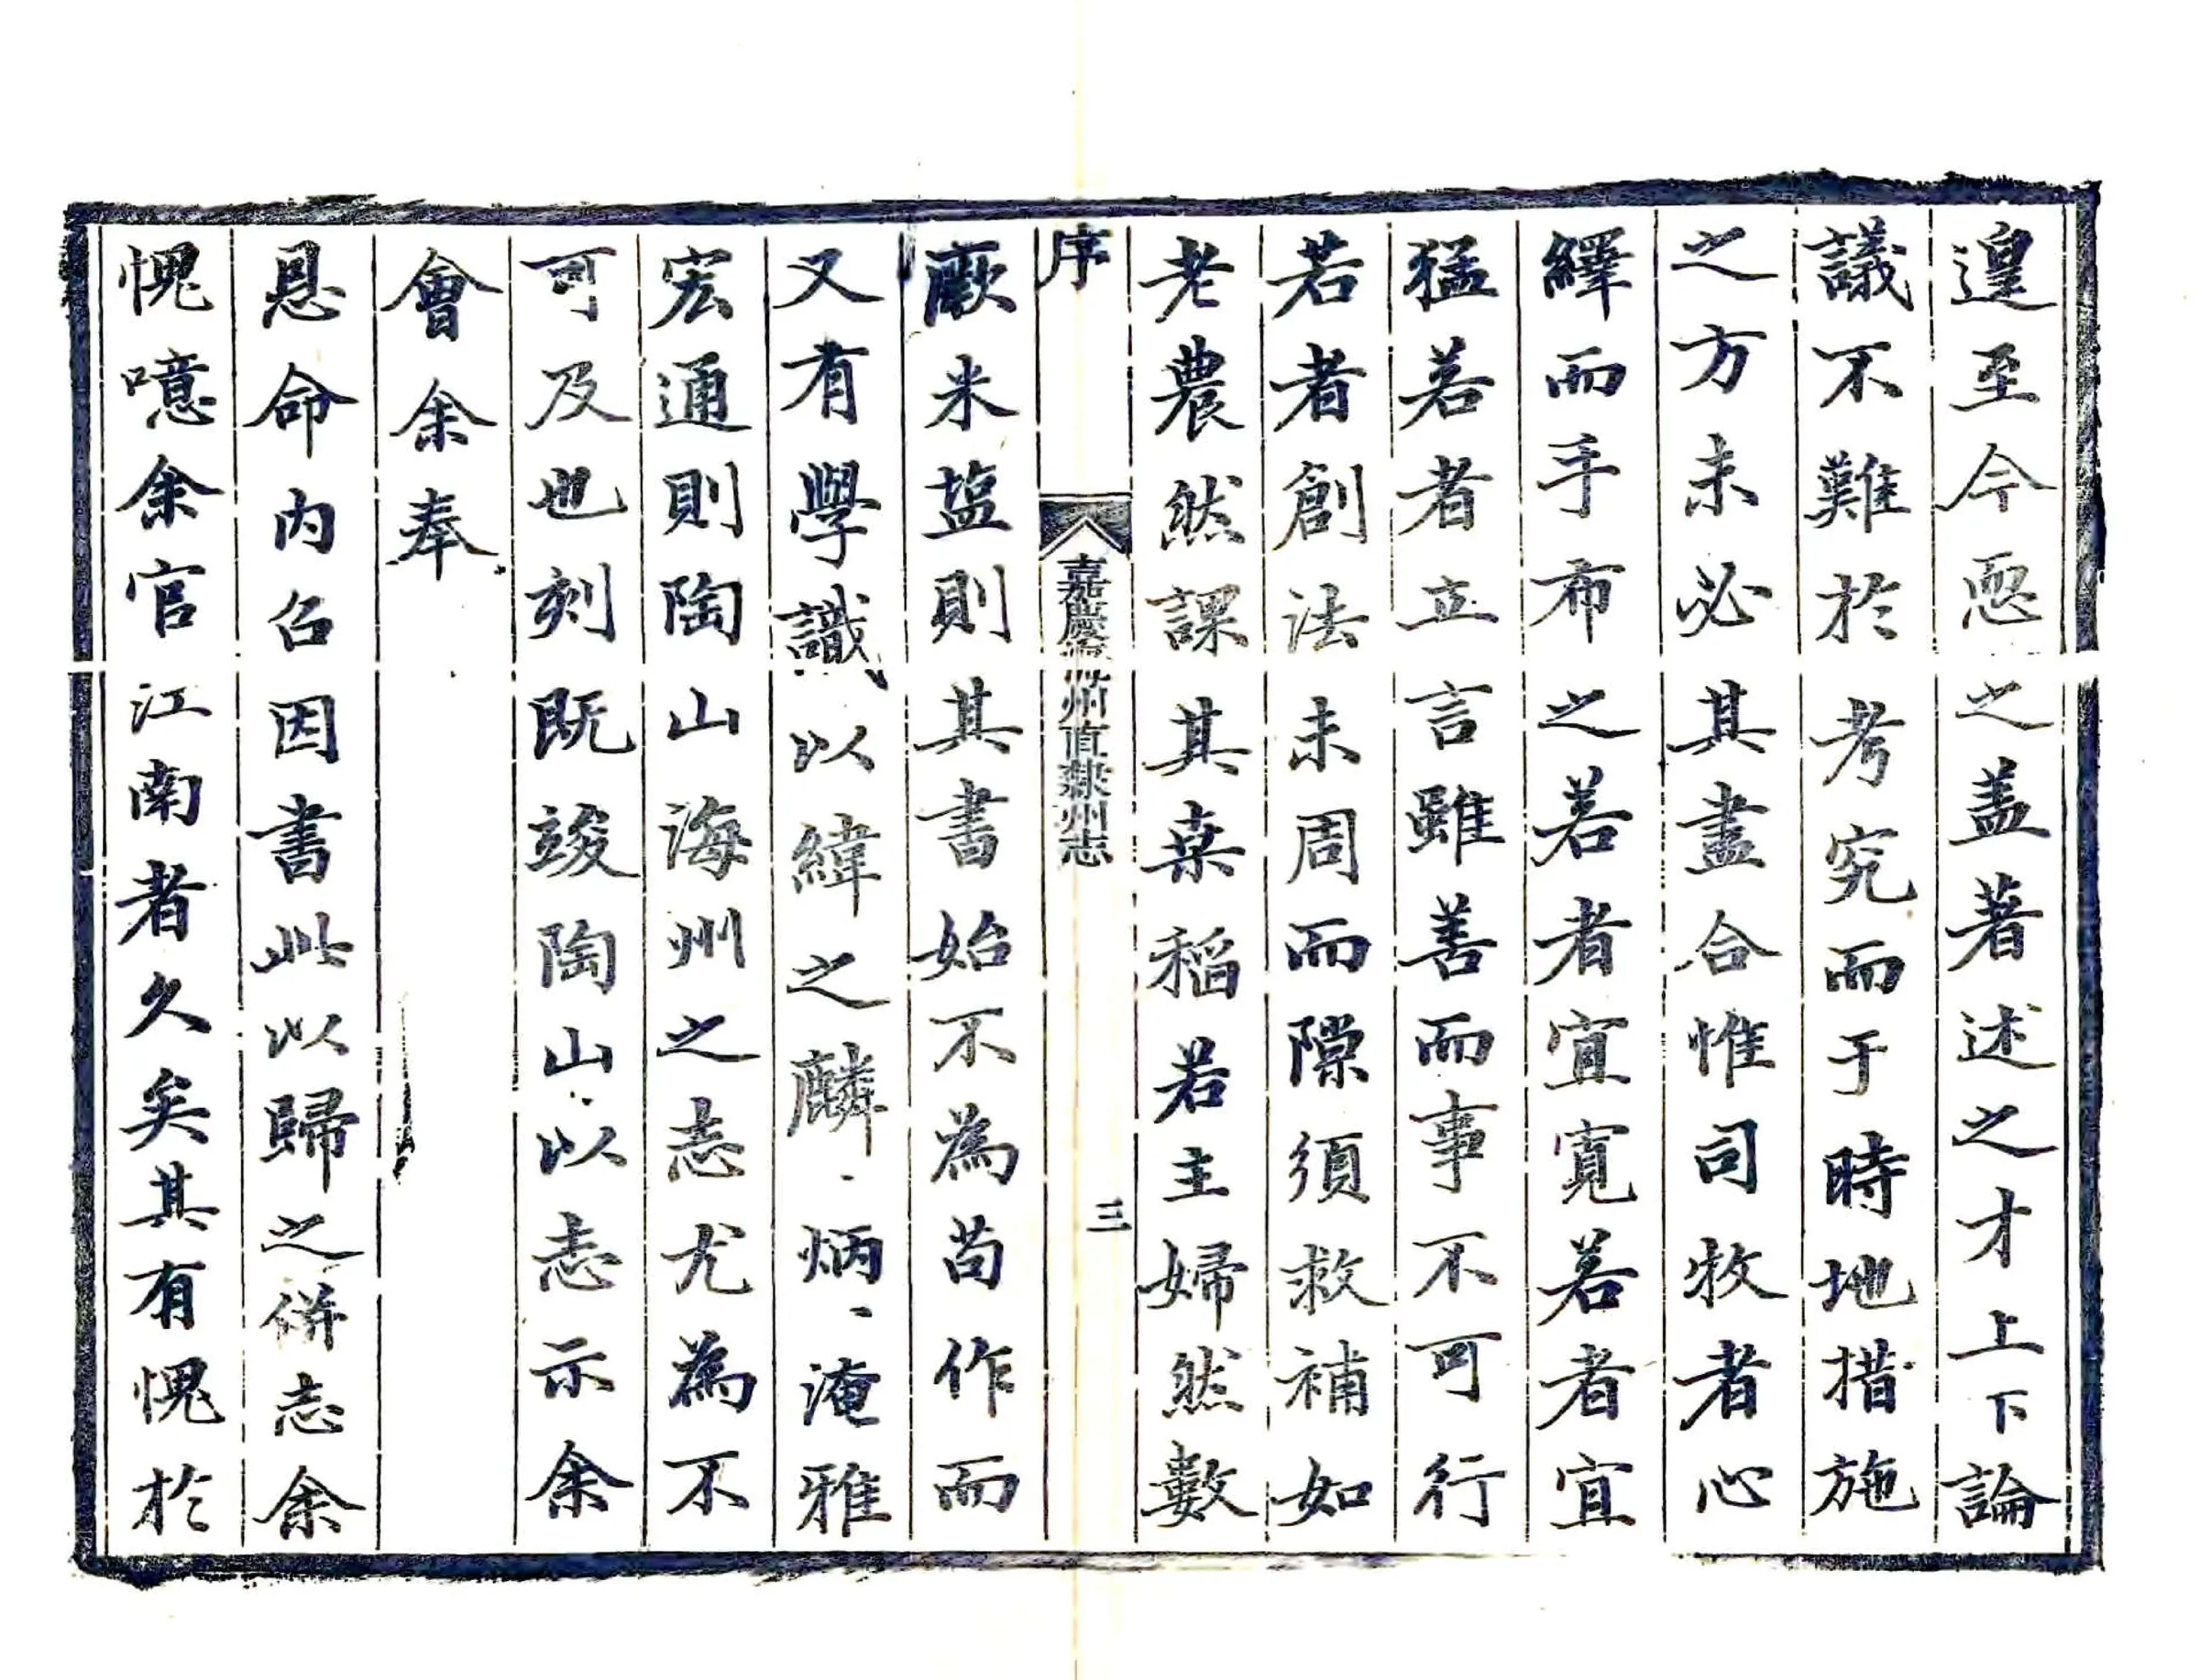 遑至今恧之盖著述之才上下論
議不難於考究而于時地措施
之方未必其盡合惟司牧者心
繹而手布之若者宜寬若者宜
猛若者立言雖善而事不可行
若者創法未周而隙須救補如
老農然課其桒稻若主婦然數
序
嘉慶海州直隸州志
三
厥米塩則其書始不為茍作而
又有學識以緯之麟炳淹雅
宏通則陶山海州之志尤為不
可及也刻既竣陶山以志示余
會余奉
恩命内召因書此以歸之併志余
愧噫余官江南者久矣其有愧於